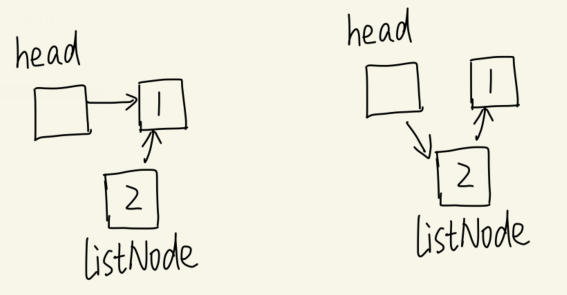 head
1
2
listNode
head
1
2
listNode